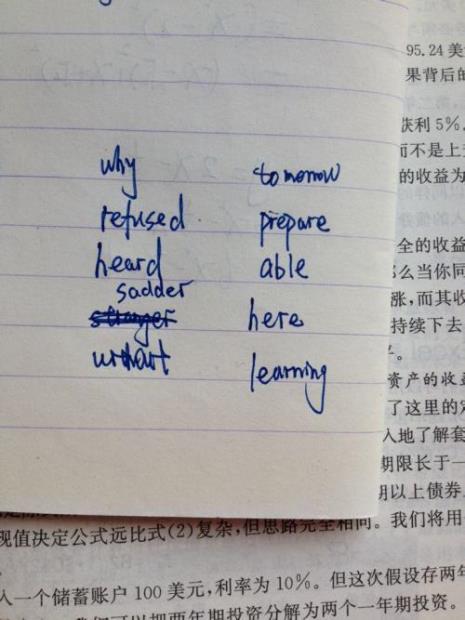 why tomorrow
refused prepare
heard able
sadder
here
without
learning
95.24 美
果背后的
获利 5%
而不是上
的收益为
全的收益
么当你同
涨,而其收
持续下去
资产的收益
了这里的
入地了解套
期限长于一
以上债券
现值决定公式远比式(2)复杂,但思路完全相同。我们将用
人一个储蓄账户 100 美元,利率为 10%。但这次假设存两年
我们可以把两年期投资分解为两个一年期投资。